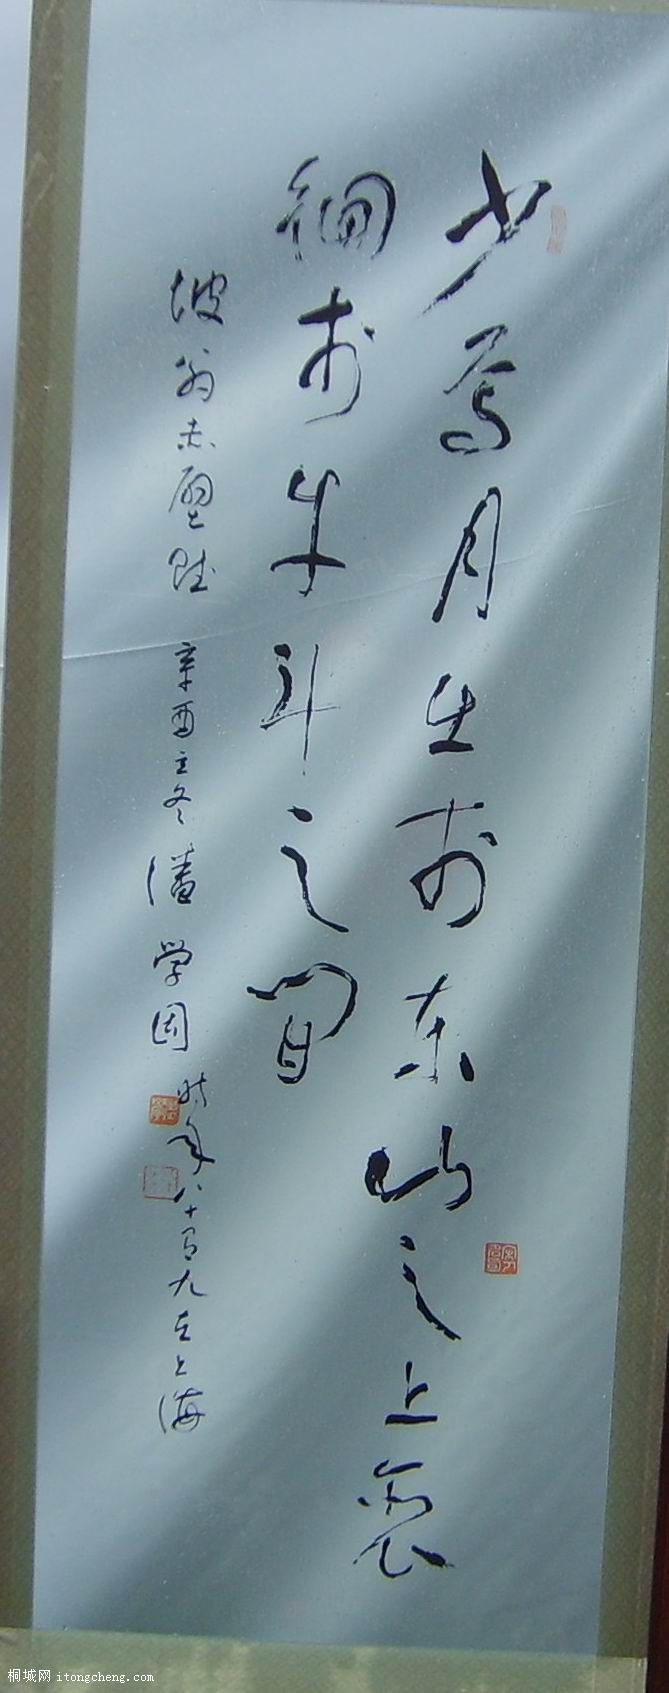 少焉月出於東山之上裵
徊於牛斗之間
坡翁赤壁賦 辛酉立冬 潘学固 时年八十有九在上海
桐城网 itongcheng.com